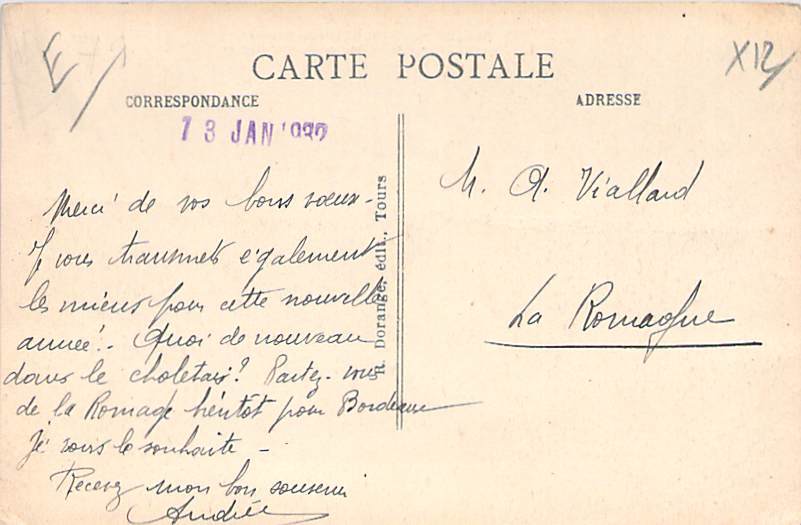 CARTE POSTALE
CORRESPONDANCE
ADRESSE
13 JAN 1932
X12
Merci de vos bons vœux -
Je vous transmets également
les miens pour cette nouvelle
année. Quoi de nouveau
dans le choletais ? Partez-vous
de la Romage bientôt pour Bordeaux
Je vous le souhaite -
Recevez mon bon souvenir
Andrée
R. Dorange, édit., Tours
M. A. Viallard
La Romagne